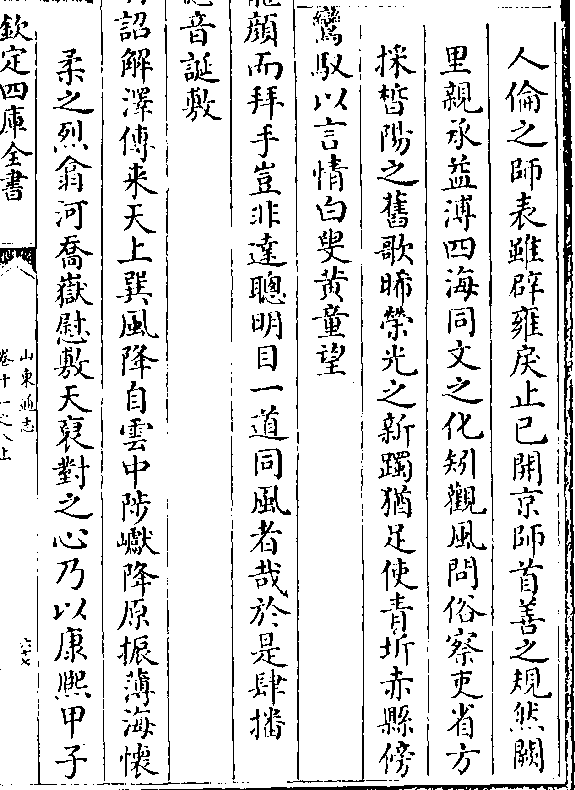 人倫之師表雖辟雍戾止已開京師首善之規然闕
里親承益溥四海同文之化矧觀風問俗察吏省方
採晳陽之舊歌晞榮光之新躅猶足使青圻赤縣傍
鸞馭以言情白叟黃童望
龍顔而拜手豈非達聰明目一道同風者哉於是肆播
德音誕敷
詔解澤傳來天上巽風降自雲中陟巘降原振薄海懷
柔之烈翕河喬嶽慰敷天裒對之心乃以康熙甲子
欽定四庫全書
山東通志
卷十一之八上